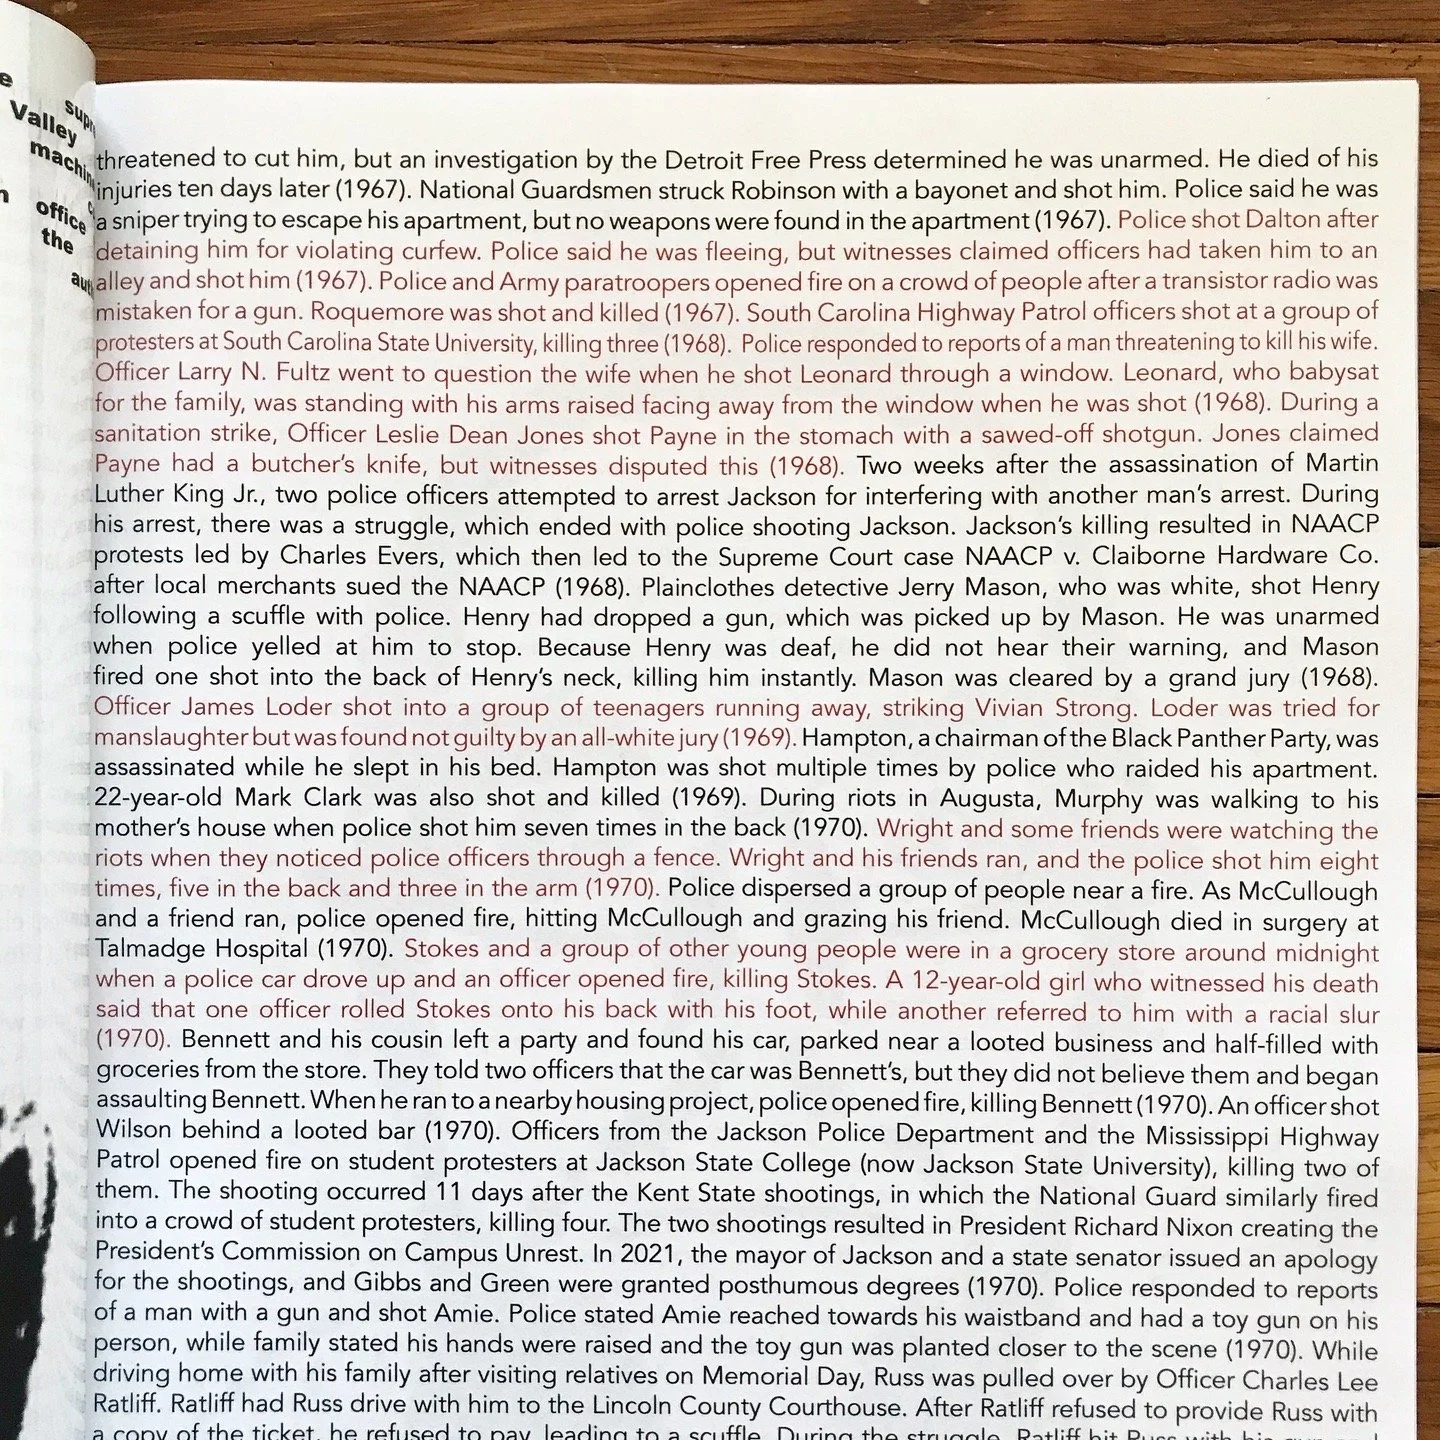 e
supr
Valley
machin
n
office
the
threatened to cut him, but an investigation by the Detroit Free Press determined he was unarmed. He died of his
injuries ten days later (1967). National Guardsmen struck Robinson with a bayonet and shot him. Police said he was
a sniper trying to escape his apartment, but no weapons were found in the apartment (1967). Police shot Dalton after
detaining him for violating curfew. Police said he was fleeing, but witnesses claimed officers had taken him to an
alley and shot him (1967). Police and Army paratroopers opened fire on a crowd of people after a transistor radio was
mistaken for a gun. Roquemore was shot and killed (1967). South Carolina Highway Patrol officers shot at a group of
protesters at South Carolina State University, killing three (1968). Police responded to reports of a man threatening to kill his wife.
Officer Larry N. Fultz went to question the wife when he shot Leonard through a window. Leonard, who babysat
for the family, was standing with his arms raised facing away from the window when he was shot (1968). During a
sanitation strike, Officer Leslie Dean Jones shot Payne in the stomach with a sawed-off shotgun. Jones claimed
Payne had a butcher's knife, but witnesses disputed this (1968). Two weeks after the assassination of Martin
Luther King Jr., two police officers attempted to arrest Jackson for interfering with another man's arrest. During
his arrest, there was a struggle, which ended with police shooting Jackson. Jackson's killing resulted in NAACP
protests led by Charles Evers, which then led to the Supreme Court case NAACP v. Claiborne Hardware Co.
after local merchants sued the NAACP (1968). Plainclothes detective Jerry Mason, who was white, shot Henry
following a scuffle with police. Henry had dropped a gun, which was picked up by Mason. He was unarmed
when police yelled at him to stop. Because Henry was deaf, he did not hear their warning, and Mason
fired one shot into the back of Henry's neck, killing him instantly. Mason was cleared by a grand jury (1968).
Officer James Loder shot into a group of teenagers running away, striking Vivian Strong. Loder was tried for
manslaughter but was found not guilty by an all-white jury (1969). Hampton, a chairman of the Black Panther Party, was
assassinated while he slept in his bed. Hampton was shot multiple times by police who raided his apartment.
22-year-old Mark Clark was also shot and killed (1969). During riots in Augusta, Murphy was walking to his
mother's house when police shot him seven times in the back (1970). Wright and some friends were watching the
riots when they noticed police officers through a fence. Wright and his friends ran, and the police shot him eight
times, five in the back and three in the arm (1970). Police dispersed a group of people near a fire. As McCullough
and a friend ran, police opened fire, hitting McCullough and grazing his friend. McCullough died in surgery at
Talmadge Hospital (1970). Stokes and a group of other young people were in a grocery store around midnight
when a police car drove up and an officer opened fire, killing Stokes. A 12-year-old girl who witnessed his death
said that one officer rolled Stokes onto his back with his foot, while another referred to him with a racial slur
(1970). Bennett and his cousin left a party and found his car, parked near a looted business and half-filled with
groceries from the store. They told two officers that the car was Bennett's, but they did not believe them and began
assaulting Bennett. When he ran to a nearby housing project, police opened fire, killing Bennett (1970). An officer shot
Wilson behind a looted bar (1970). Officers from the Jackson Police Department and the Mississippi Highway
Patrol opened fire on student protesters at Jackson State College (now Jackson State University), killing two of
them. The shooting occurred 11 days after the Kent State shootings, in which the National Guard similarly fired
into a crowd of student protesters, killing four. The two shootings resulted in President Richard Nixon creating the
President's Commission on Campus Unrest. In 2021, the mayor of Jackson and a state senator issued an apology
for the shootings, and Gibbs and Green were granted posthumous degrees (1970). Police responded to reports
of a man with a gun and shot Amie. Police stated Amie reached towards his waistband and had a toy gun on his
person, while family stated his hands were raised and the toy gun was planted closer to the scene (1970). While
driving home with his family after visiting relatives on Memorial Day, Russ was pulled over by Officer Charles Lee
Ratliff. Ratliff had Russ drive with him to the Lincoln County Courthouse. After Ratliff refused to provide Russ with
a copy of the ticket, he refused to pay, leading to a scuffle. During the struggle, Ratliff hit Russ with his gun and